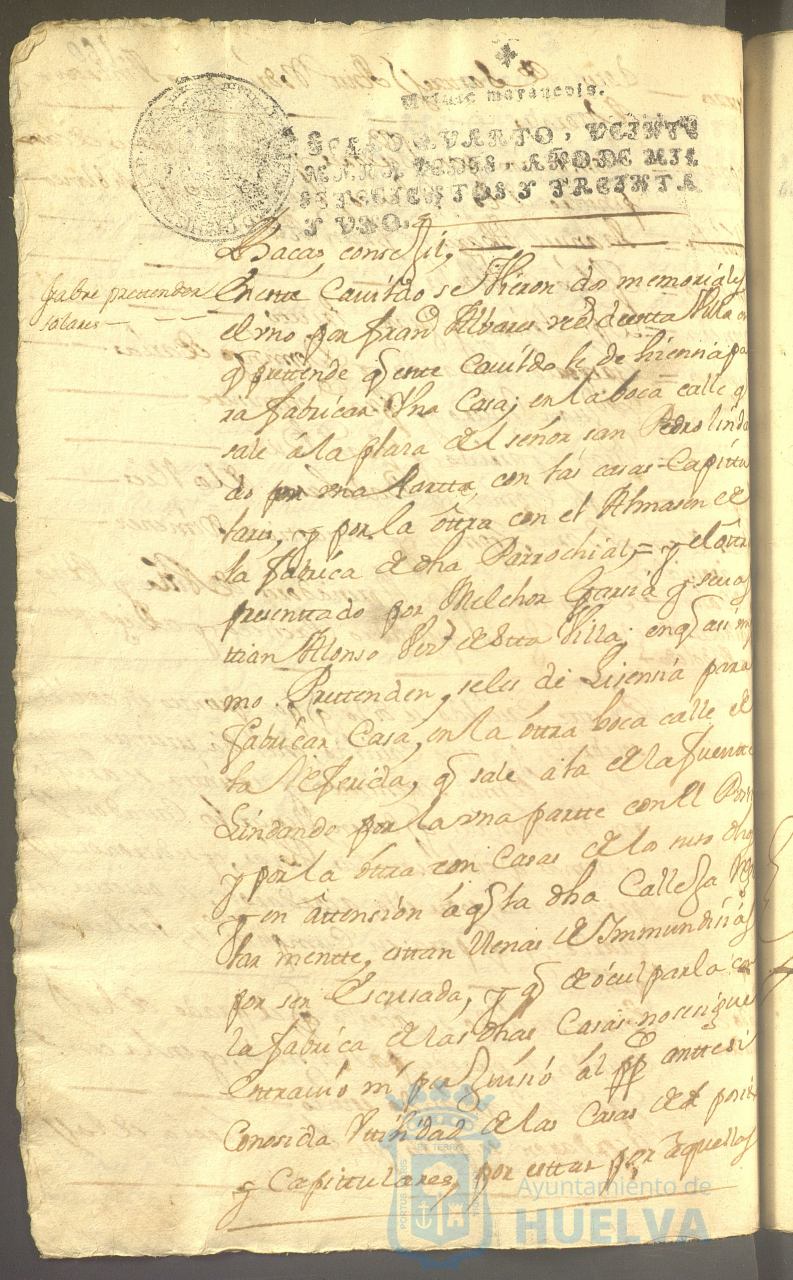 Veinte maravedis.
SELLO QVARTO, VEINTE
MARAVEDIS, AÑO DE MIL
SETECIENTOS Y TREINTA
Y VNO.
Bacas consegil,
sobre prettender
solares
En este Cavildo se Vieron dos memoriales
el vno por Fran.co Albares vez.o de esta Villa en
q prettende q este Cavildo le de lisensia pa
ra fabricar Vna Casa, en la boca calle q
sale â la plasa del señor san Pedro linda
do por vna Partte, con las casas Capittu
lares, y por la ôttra con el Almasen de
la fabrica de dha Parrochial, = y el ôttro
presenttado por Melchor Garsia y Sevas
tian Alonso Vez.s de esta Villa, en q asi mis
mo Prettenden, se les de Lisensia para
fabricar Casa, en la ôttra boca calle de
la Referida, q sale a la de la fuente
Lindando por la vna partte con el Posi
y por la ôttra con Casas de los suso dhos
y en attension â q la dha Calleja Re
lar mentte, esttan llenas de Immundisias
por ser Escusada, y q de ôculparla con
la fabrica de las dhas Casas no se sigue
enttravio ni perjuisio âl pp.co antes si
Conosida Uttilidad de las Casas del posi
y Capittulares, por esttar por aquellas
PORTUS MARIS
ET TERRAE
Ayuntamiento de
HUELVA